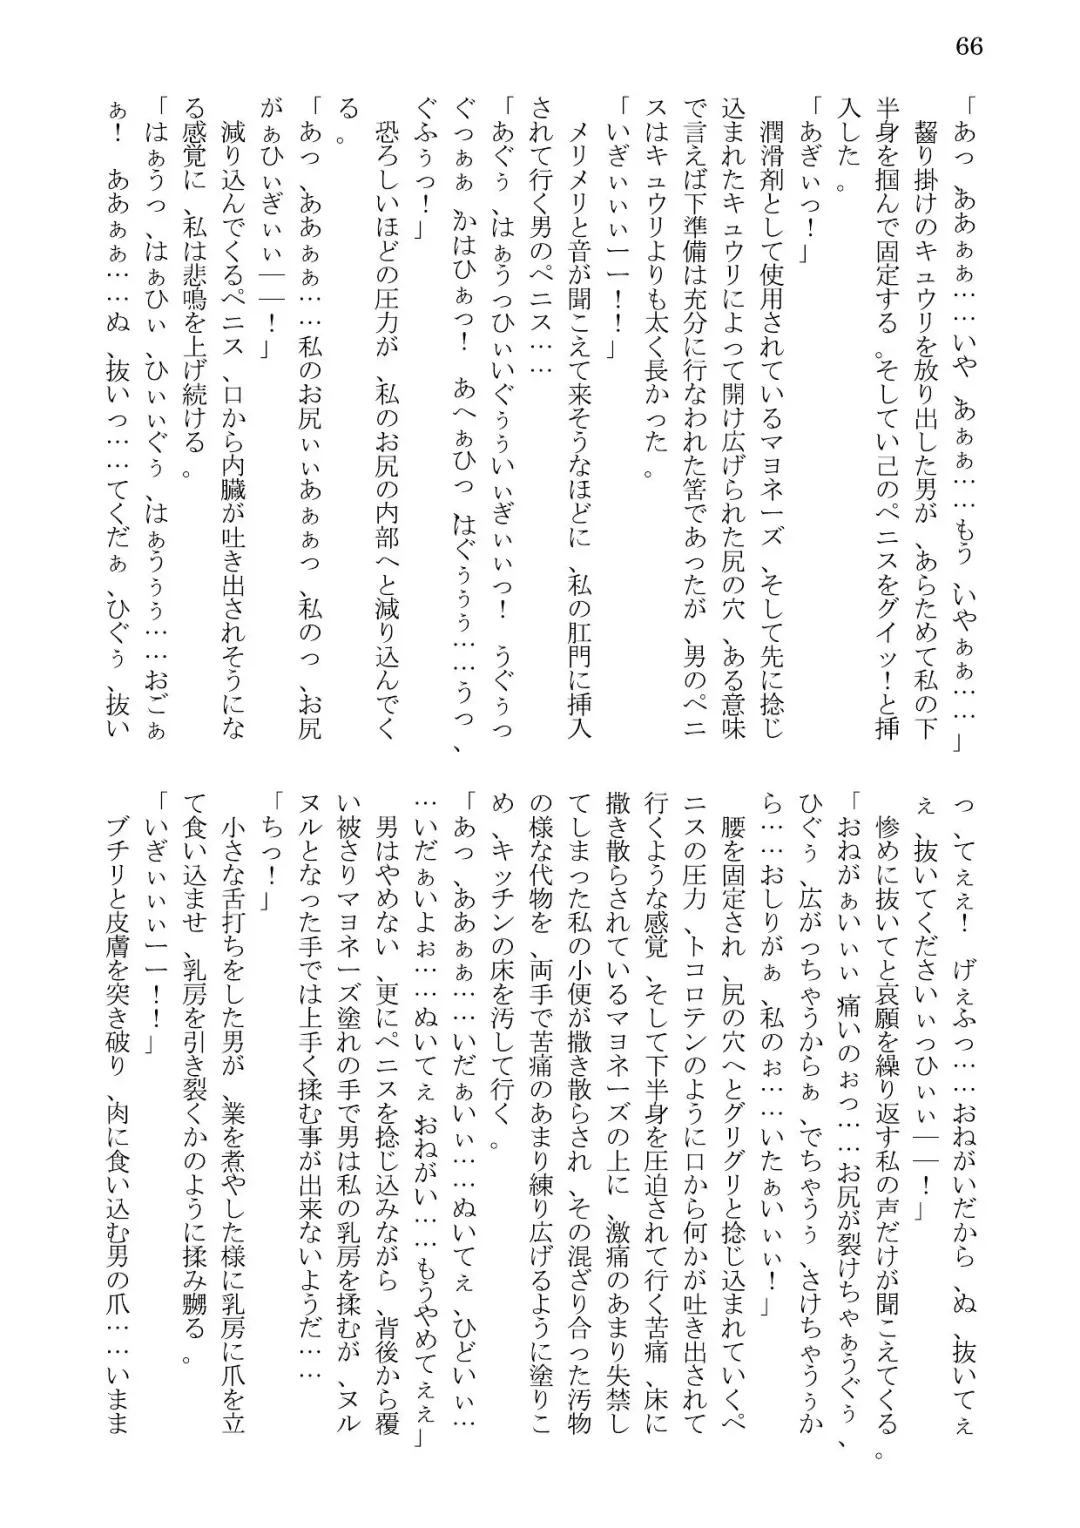 66
「あっ、ああぁぁ……いや、あぁぁ……もう、いやぁぁ……」
　齧り掛けのキュウリを放り出した男が、あらためて私の下
半身を掴んで固定する。そしてい己のペニスをグイッ！と挿
入した。
「あぎぃっ！」
　潤滑剤として使用されているマヨネーズ、そして先に捻じ
込まれたキュウリによって開け広げられた尻の穴、ある意味
で言えば下準備は充分に行なわれた筈であったが、男のペニ
スはキュウリよりも太く長かった。
「いぎぃぃぃーー！！」
　メリメリと音が聞こえて来そうなほどに、私の肛門に挿入
されて行く男のペニス……
「あぐぅ、はぁうっひぃいぐぅぅいぃぎぃぃっ！　うぐぅっ
ぐっぁぁ、かはひぁっ！　あへぁひっ、はぐぅぅぅ……うっ、
ぐふぅっ！」
　恐ろしいほどの圧力が、私のお尻の内部へと減り込んでく
る。
「あっ、ああぁぁ……私のお尻ぃぃあぁぁっ、私のっ、お尻
がぁひぃぎぃぃ――！」
　減り込んでくるペニス、口から内臓が吐き出されそうにな
る感覚に、私は悲鳴を上げ続ける。
「はぁうっ、はぁひぃ、ひぃぃぐぅ、はぁうぅぅ……おごぁ
ぁ！　ああぁぁ……ぬ、抜いっ……てくだぁ、ひぐぅ、抜い
っ、てぇぇ！　げぇふっ……おねがいだから、ぬ、抜いてぇ
ぇ、抜いてくださいぃっひぃぃ――！」
　惨めに抜いてと哀願を繰り返す私の声だけが聞こえてくる。
「おねがぁいぃぃ、痛いのぉっ……お尻が裂けちゃぁうぐぅ、
ひぐぅ、広がっちゃうからぁ、でちゃうぅ、さけちゃうぅか
ら……おしりがぁ、私のぉ……いたぁいぃぃ！」
　腰を固定され、尻の穴へとグリグリと捻じ込まれていくペ
ニスの圧力、トコロテンのように口から何かが吐き出されて
行くような感覚、そして下半身を圧迫されて行く苦痛、床に
撒き散らされているマヨネーズの上に、激痛のあまり失禁し
てしまった私の小便が撒き散らされ、その混ざり合った汚物
の様な代物を、両手で苦痛のあまり練り広げるように塗りこ
め、キッチンの床を汚して行く。
「あっ、ああぁぁ……いだぁいぃ……ぬいてぇ、ひどいぃ…
…いだぁいよぉ……ぬいてぇ、おねがい……もうやめてぇぇ」
　男はやめない、更にペニスを捻じ込みながら、背後から覆
い被さりマヨネーズ塗れの手で男は私の乳房を揉むが、ヌル
ヌルとなった手では上手く揉む事が出来ないようだ……
「ちっ！」
　小さな舌打ちをした男が、業を煮やした様に乳房に爪を立
て食い込ませ、乳房を引き裂くかのように揉み嬲る。
「いぎぃぃぃーー！！」
　ブチリと皮膚を突き破り、肉に食い込む男の爪……いまま